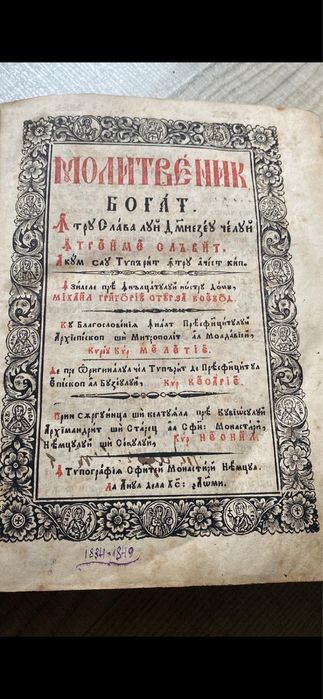 МОЛИТВЕ́НИК
БОГАТ.
Ꙟтру Слава луй Дꙋмнезеꙋ челуй
ꙟ тро́име ѡлъвит.
Акум сау Тупърит ꙟтру ачест кип.
Ꙟ зилеле прѣ ꙟнълцатулуй ностру Домн,
МІХАИЛ ГРИГОРІЕ СТУРЗА ВОЕВОД.
Ку Благословеніѧ ꙟналт Преѡсфинцитулуй
Архіепископ ши Митрополит ал Молдавїей,
Куріꙋ Кур МЕЛЕТІЕ.
Де пре Ѡригиналул чел Тупърит де Преѡсфинцитул
Епископ ал Бузъулуй, Кур КЕСАРІЕ.
Прин Сѫргуинца ши келтуꙗла прѣ Кувїосулуй
Архімандрит ши Старец ал Сфин: Монастирй,
Нѣмцулуй ши Секулуй, Кур НЕОНИЛ.
Ꙟ Тѵпографїѧ Сфинтей Монастирй Нѣмцул.
Ла Анул дела Хс:
1834-1849